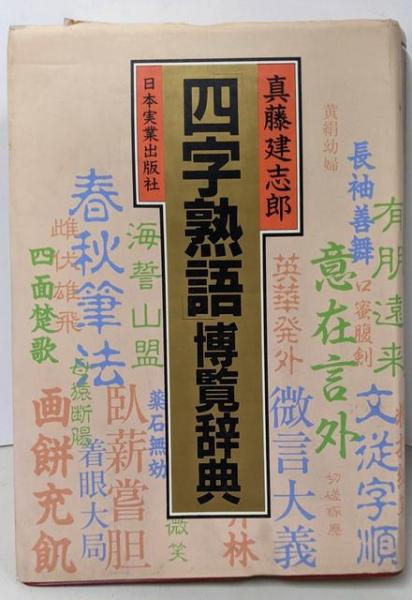 真藤建志郎
「四字熟語」博覧辞典
日本実業出版社
黄絹幼婦
長袖善舞
有朋遠来
口蜜腹剣
意在言外
英華発外
文従字順
微言大義
切磋琢磨
春秋筆法
海誓山盟
雌伏雄飛
四面楚歌
母猿断腸
臥薪嘗胆
薬石無効
画餅充飢
着眼大局
微笑
林